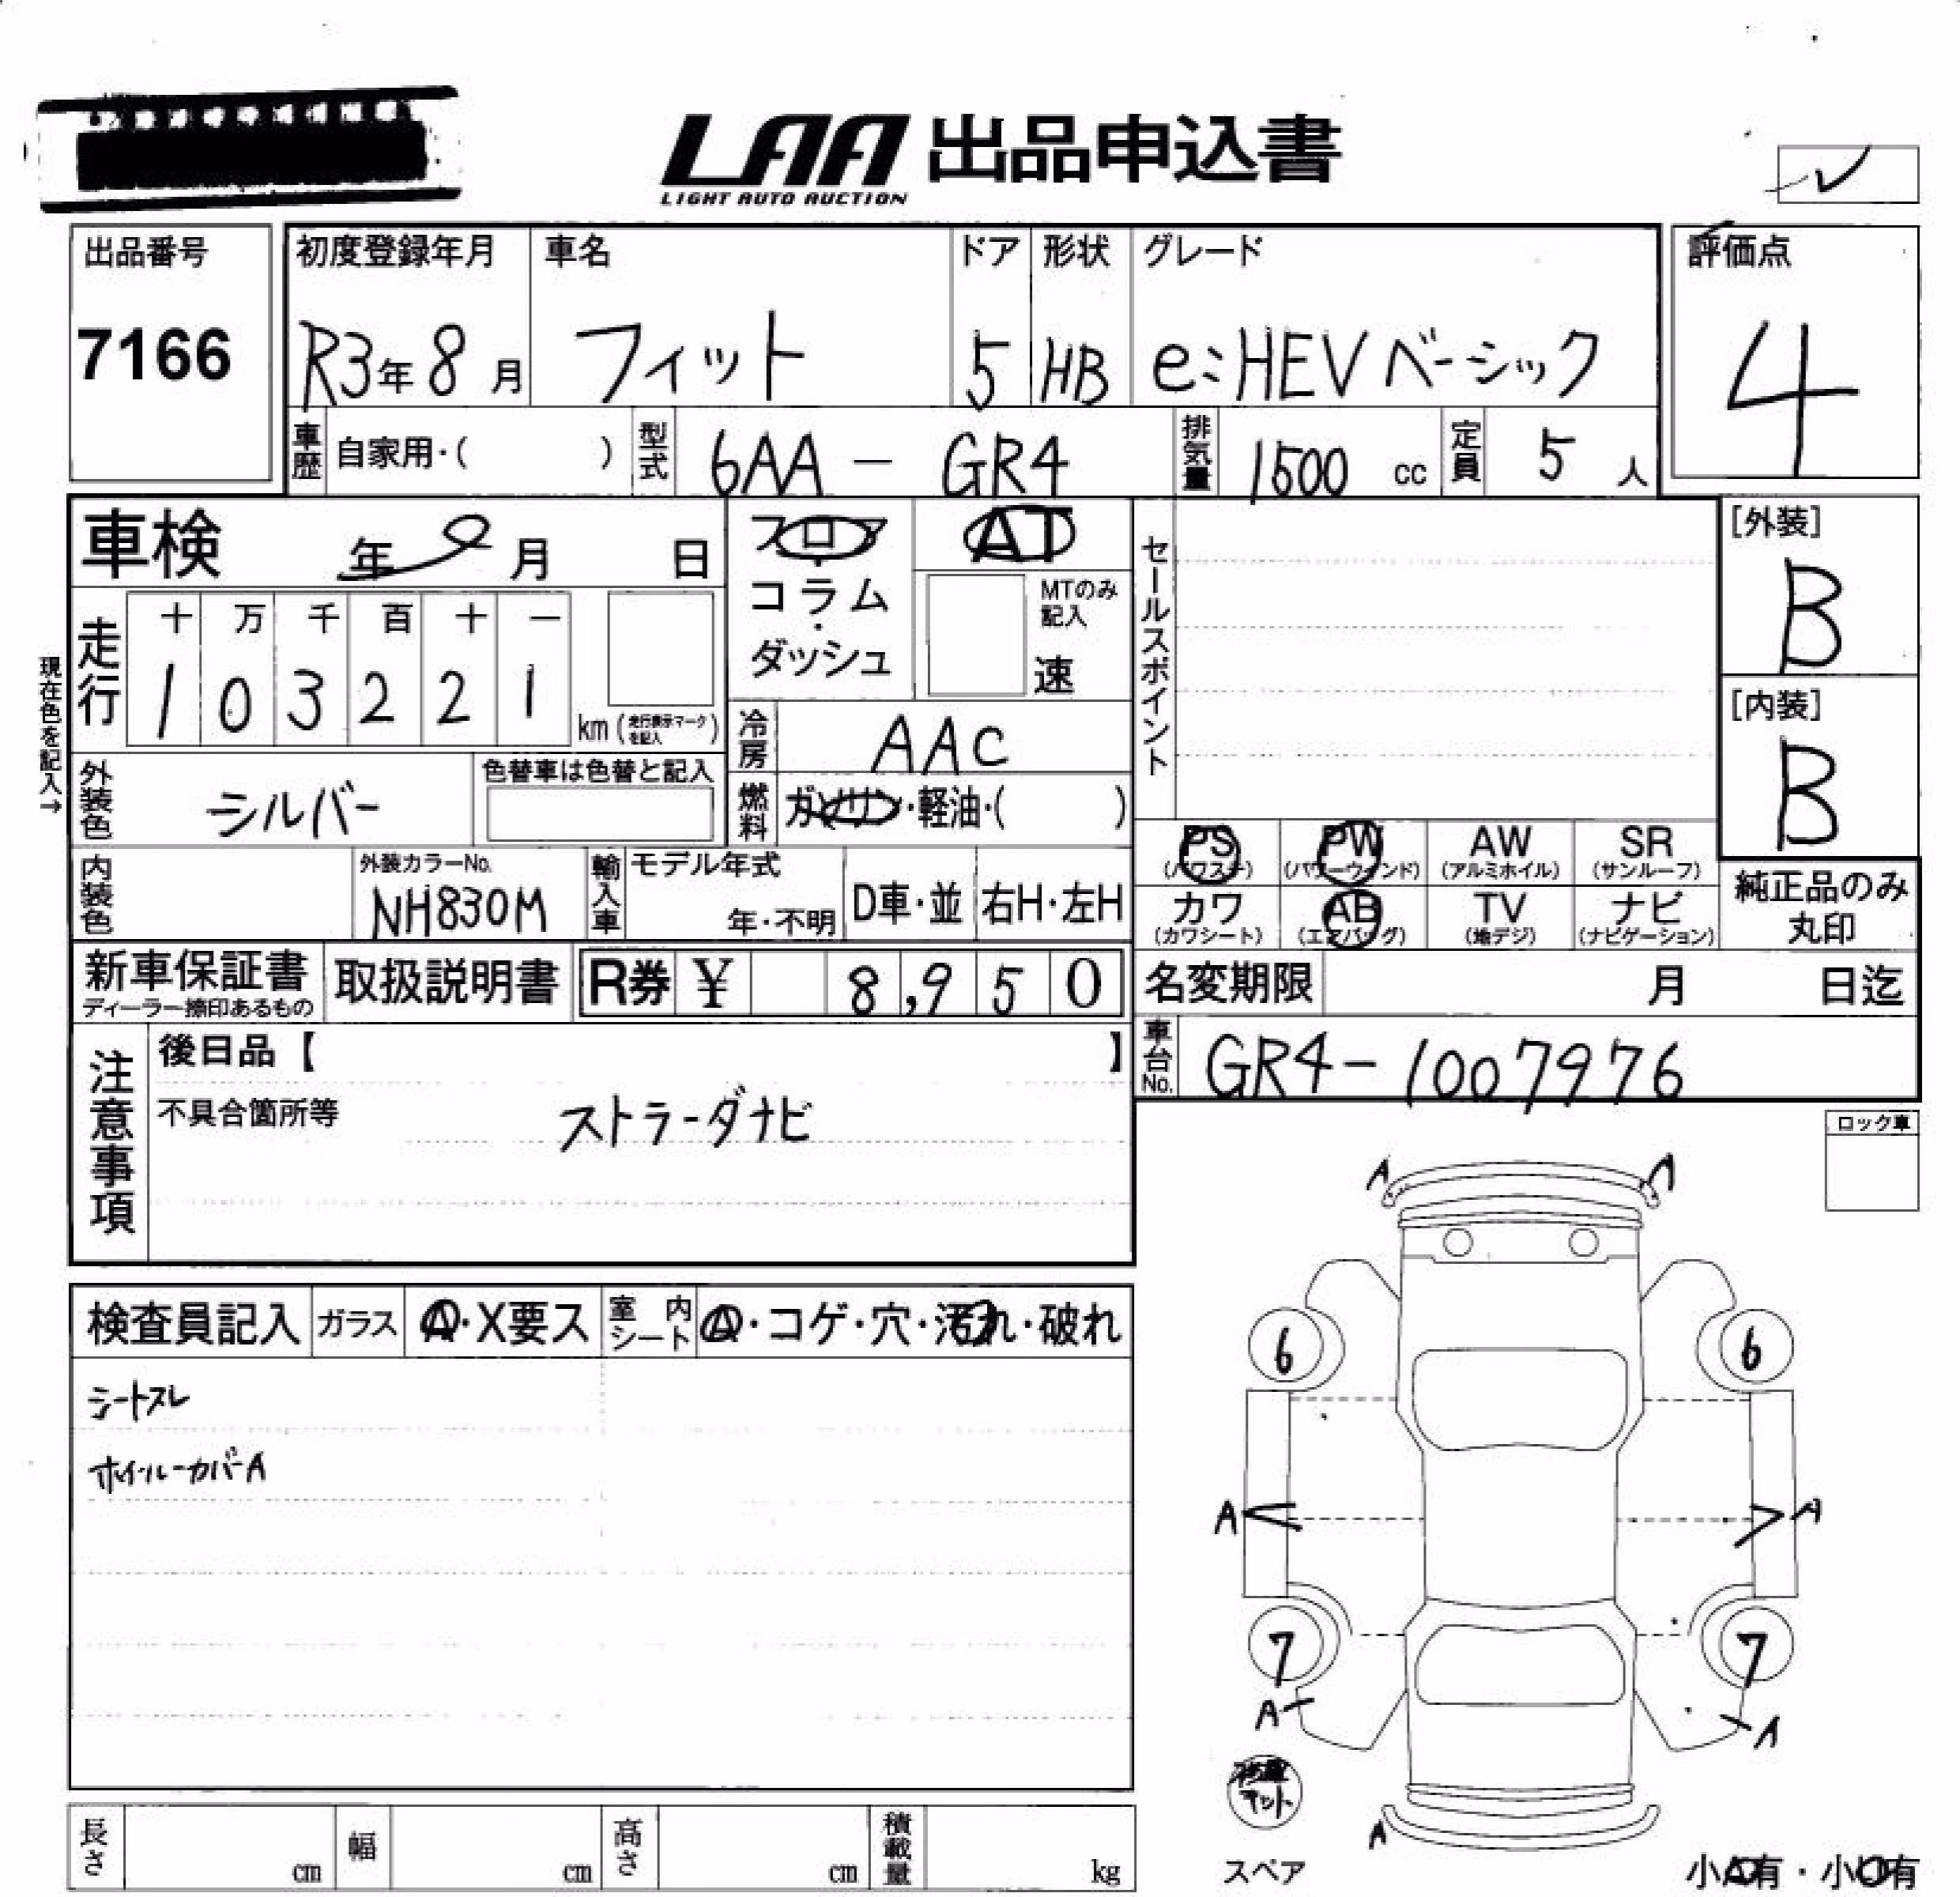 LAA 出品申込書
LIGHT AUTO AUCTION
出品番号
7166
初度登録年月
R3年8月
車名
フィット
ドア
5
形状
HB
グレード
e:HEVベーシック
評価点
4
車歴 自家用・( )
型式 6AA - GR4
排気量 1500 cc
定員 5 人
車検 年 月 日
フロア
・
コラム
・
ダッシュ
AT
MTのみ
記入
速
セールスポイント
[外装]
B
[内装]
B
現在色を記入→
走行
十 万 千 百 十 一
1 0 3 2 2 1
km (走行表示マークを記入)
冷房 AAC
外装色 シルバー
色替車は色替と記入
燃料 ガソリン・軽油・( )
内装色
外装カラーNo.
NH830M
輸入車
モデル年式
年・不明
D車・並
右H・左H
PS
(パワステ)
PW
(パワーウインド)
AW
(アルミホイル)
SR
(サンルーフ)
カワ
(カワシート)
AB
(エアバッグ)
TV
(地デジ)
ナビ
(ナビゲーション)
純正品のみ
丸印
新車保証書
ディーラー捺印あるもの
取扱説明書
R券 ¥ 8,950
名変期限 月 日迄
車台No. GR4-1007976
注意事項
後日品【 】
不具合箇所等
ストラーダナビ
ロック車
検査員記入
ガラス
A・X要ス
室内シート
A・コゲ・穴・汚れ・破れ
シートスレ
ホイールーカバーA
A A
6 6
A A
7 7
A A
A
スペア
小A有・小U有
長さ cm
幅 cm
高さ cm
積載量 kg